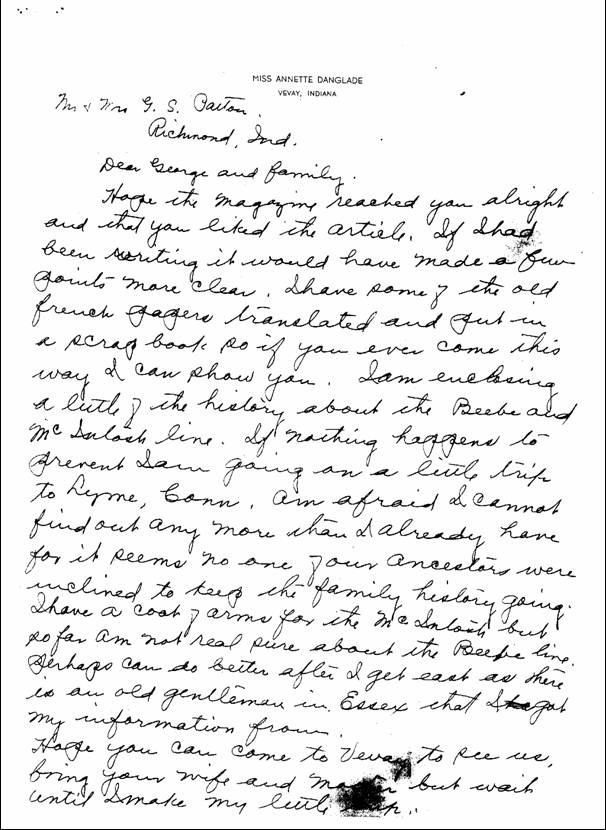 MISS ANNETTE DANGLADE
VEVAY, INDIANA
Mr & Mrs G. S. Patton.
Richmond, Ind.
Dear George and family.
Hope the magazine reached you alright
and that you liked the article. If I had
been writing it would have made a few
points more clear. I have some of the old
french papers translated and put in
a scrap book so if you ever come this
way I can show you. I am enclosing
a little of the history about the Beebe and
McIntosh line. If nothing happens to
prevent I am going on a little trip
to Lyme, Conn. Am afraid I cannot
find out any more than I already have
for it seems no one of our ancestors were
inclined to keep the family history going.
I have a coat of arms for the McIntosh but
so far am not real sure about the Beebe line.
Perhaps can do better after I get east as there
is an old gentleman in Essex that I got
my information from.
Hope you can come to Vevay to see us,
bring your wife and but wait
until I make my little